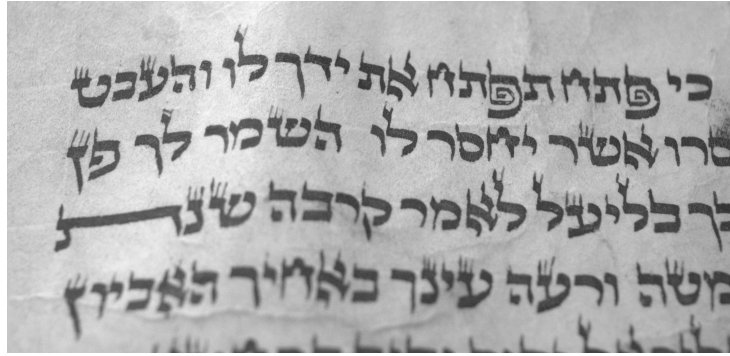 כי פתח תפתח את ידך לו והעבט
סרו אשר יחסר לו השמר לך פן
בך בליעל לאמר קרבה שנת
מטה ורעה עינך באחיך האביון